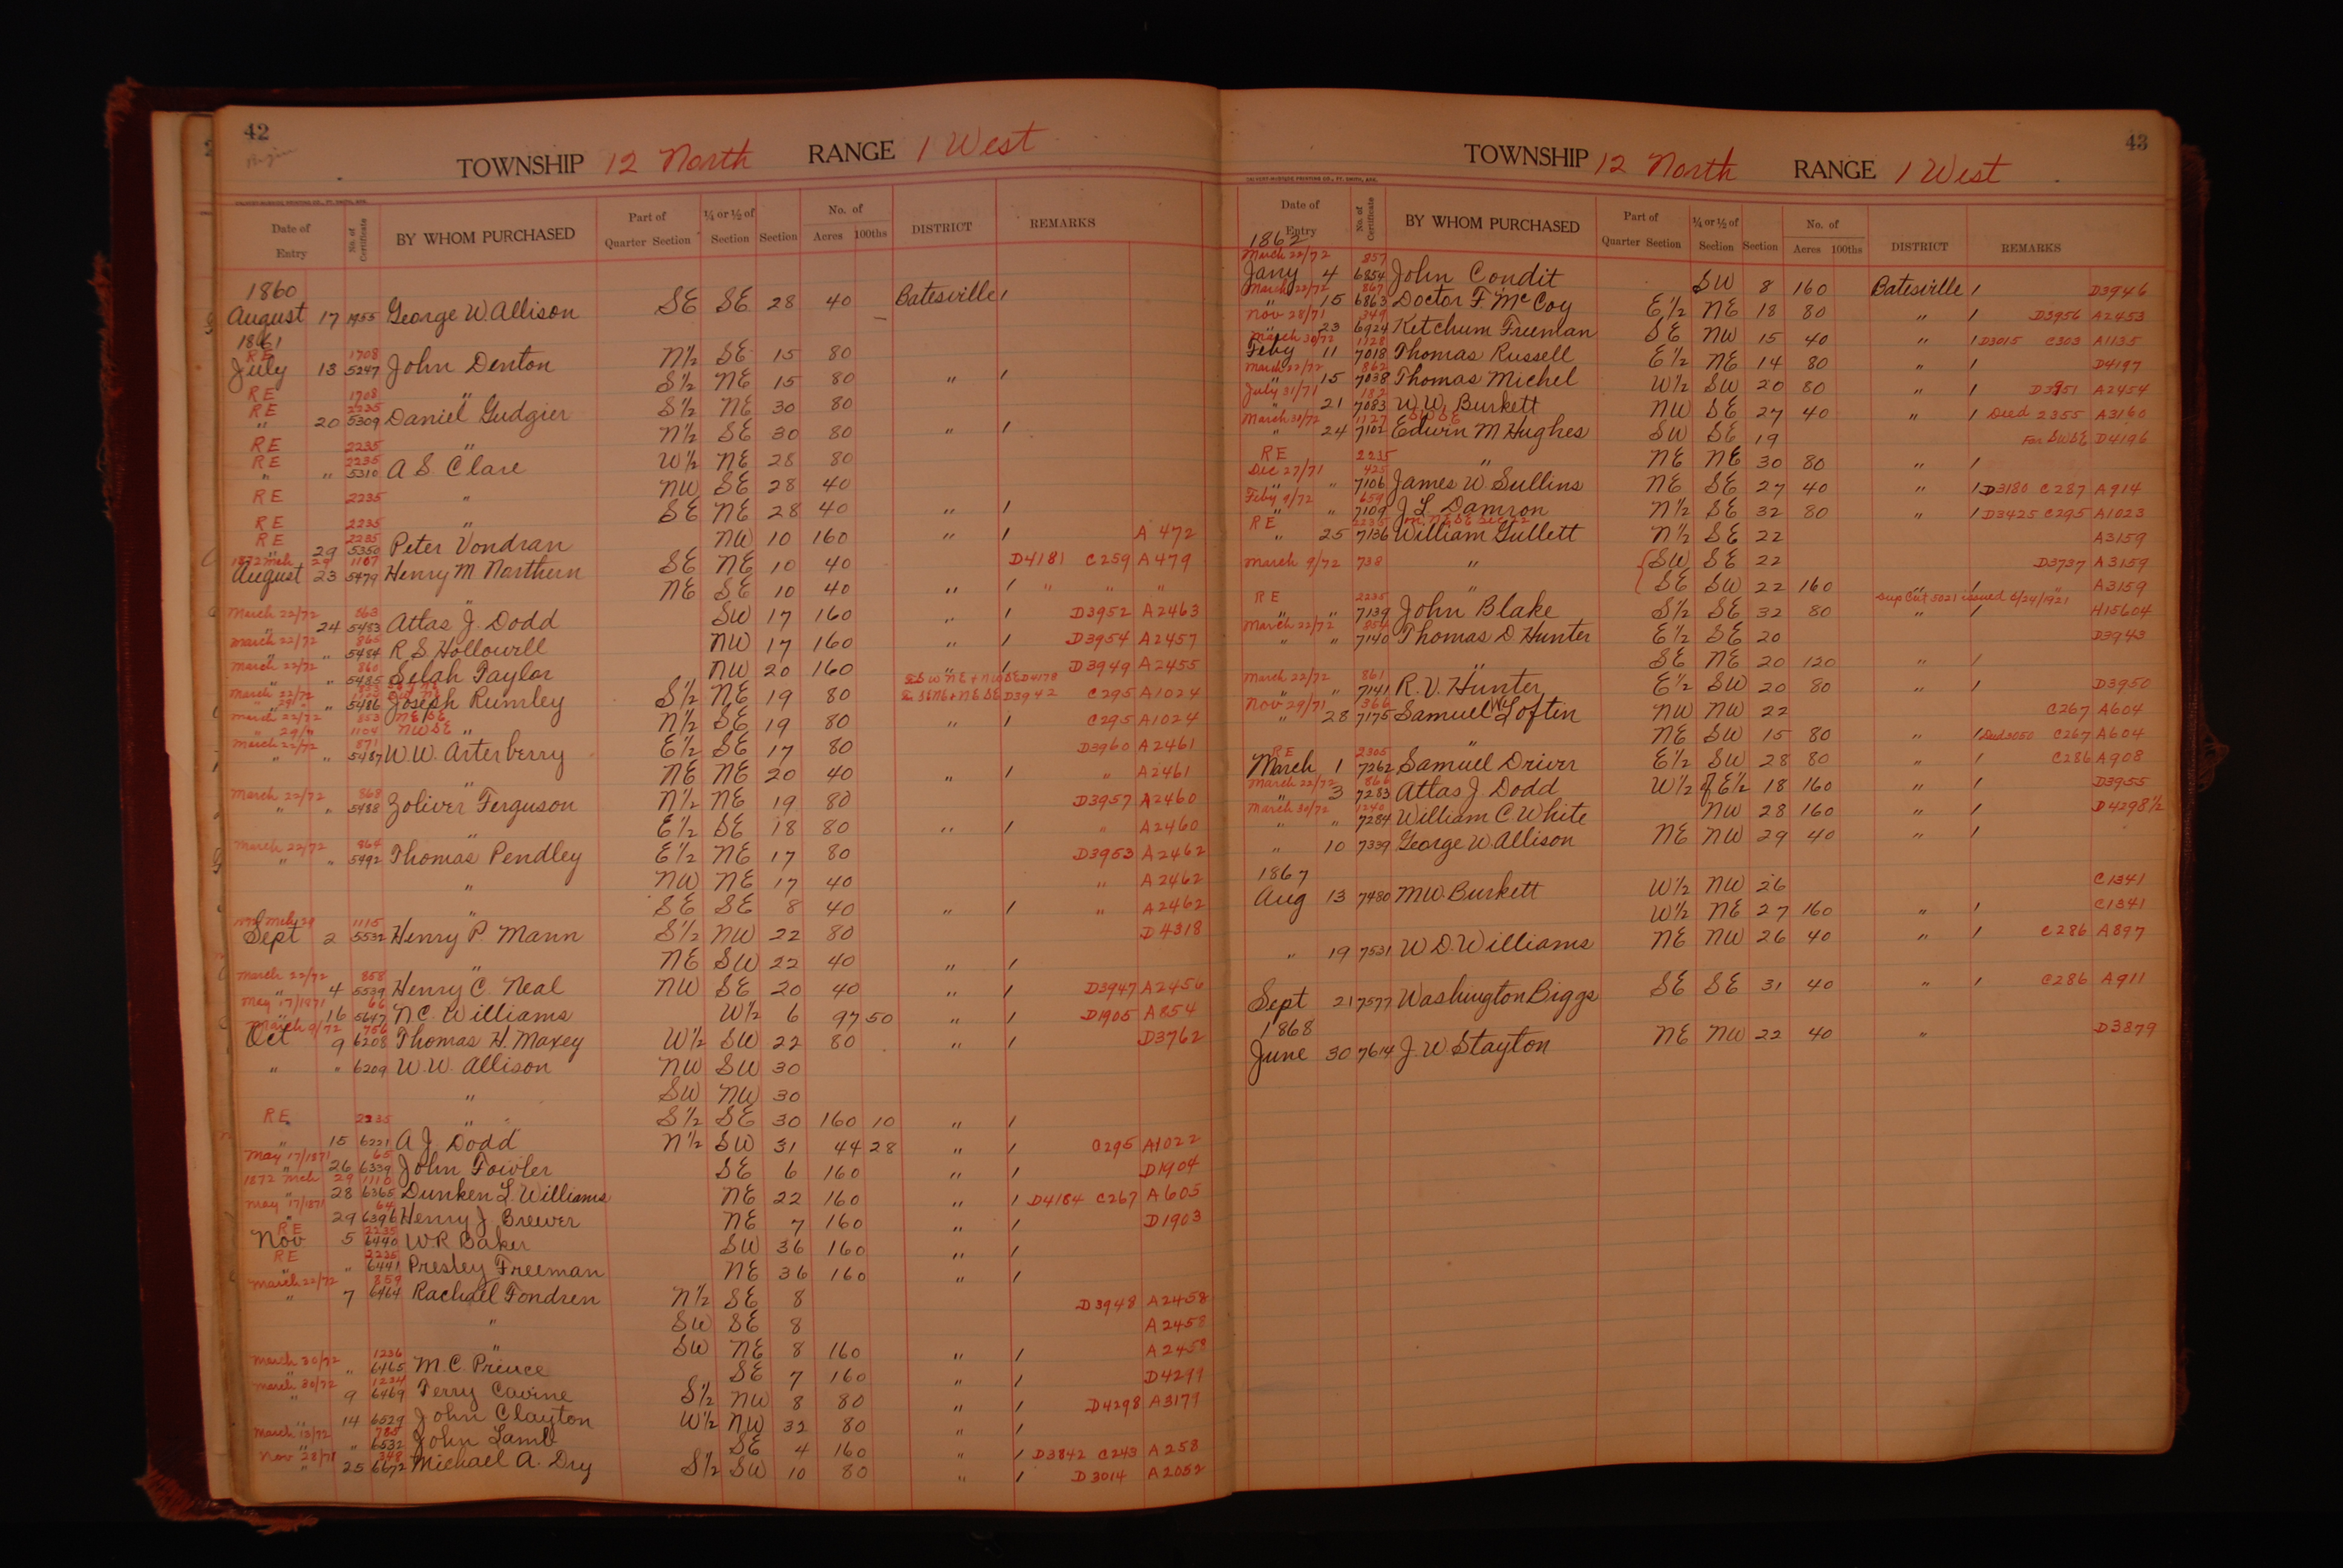 42
TOWNSHIP 12 North RANGE 1 West
CALVERT-McBRIDE PRINTING CO., FT. SMITH, ARK.
Date of Entry No. of Certificate BY WHOM PURCHASED Part of Quarter Section ¼ or ½ of Section Section No. of Acres 100ths DISTRICT REMARKS
1860
August 17 George W. Allison SE SE 28 40 Batesville 1
1861
RE 1708
July 13 5247 John Denton N½ SE 15 80
RE 1708 " S½ NE 15 80 " 1
RE 2235
" 20 5309 Daniel Gudgier S½ NE 30 80
RE 2235 " N½ SE 30 80 " 1
RE 2235
" " 5310 A S. Clare W½ NE 28 80
RE 2235 " NW SE 28 40
RE 2235 " SE NE 28 40 " 1
RE 2235
" 29 5350 Peter Vondran NW 10 160 " 1 A 472
1872 Mch 29 1107
August 23 5479 Henry M Northern SE NE 10 40 D4181 C259 A479
" NE SE 10 40 " 1 " " "
March 22/72 863
" 24 5483 Atlas J. Dodd SW 17 160 " 1 D3952 A2463
March 22/72 865
" " 5484 R S Hollowell NW 17 160 " 1 D3954 A2457
March 22/72 860
" " 5485 Selah Taylor NW 20 160 " 1 D3949 A2455
SW NE + NW SE D4178
March 22/72 853
" 29/" " 5486 Joseph Rumley S½ NE 19 80 SE NE + NE SE D3942 C295 A1024
March 22/72 853 NE SE
" 29/" 1104 NW SE " N½ SE 19 80 " 1 C295 A1024
March 22/72 871
" " 5487 W.W. Arterberry E½ SE 17 80 D3960 A2461
" NE NE 20 40 " 1 " A2461
March 22/72 868
" " 5488 Zoliver Ferguson N½ NE 19 80 D3957 A2460
" E½ SE 18 80 " 1 " A2460
March 22/72 864
" " 5492 Thomas Pendley E½ NE 17 80 D3953 A2462
" NW NE 17 40 " A2462
" SE SE 8 40 " 1 " A2462
1872 Mch 29 1115
Sept 2 5532 Henry P. Mann S½ NW 22 80 D4318
" NE SW 22 40 " 1
March 22/72 858
" 4 5539 Henry C. Neal NW SE 20 40 " 1 D3947 A2456
May 17/1871 66
" 16 5647 N.C. Williams W½ 6 97 50 " 1 D1905 A854
March 9/72 756
Oct 9 6208 Thomas H. Maxey W½ SW 22 80 " 1 D3762
" " 6209 W.W. Allison NW SW 30
" SW NW 30
RE 2235 " S½ SE 30 160 10 " 1
" 15 6221 A J. Dodd N½ SW 31 44 28 " 1 C295 A1022
May 17/1871 65
" 26 6339 John Fowler SE 6 160 " 1 D1904
1872 Mch 29 1110
" 28 6365 Dunken L. Williams NE 22 160 " 1 D4184 C267 A605
May 17/1871 64
" 29 6396 Henry J. Brewer NE 7 160 " 1 D1903
RE 2235
Nov 5 6440 W R Baker SW 36 160 " 1
RE 2235
" " 6441 Presley Freeman NE 36 160 " 1
March 22/72 859
" 7 6464 Rachael Fondren N½ SE 8 D3948 A2458
" SW SE 8 A2458
" SW NE 8 160 " 1 A2458
March 30/72 1236
" " 6465 M.C. Prince SE 7 160 " 1 D4299
March 30/72 1234
" 9 6469 Terry Cavine S½ NW 8 80 " 1 D4298 A3179
" 14 6529 John Clayton W½ NW 32 80 " 1
March 13/72 785
" " 6532 John Lamb SE 4 160 " 1 D3842 C243 A258
Nov 28/71 348
" 25 6672 Michael A. Dry S½ SW 10 80 " 1 D3014 A2052
43
TOWNSHIP 12 North RANGE 1 West
CALVERT-McBRIDE PRINTING CO., FT. SMITH, ARK.
Date of Entry No. of Certificate BY WHOM PURCHASED Part of Quarter Section ¼ or ½ of Section Section No. of Acres 100ths DISTRICT REMARKS
1862
March 22/72 857
Jany 4 6854 John Condit SW 8 160 Batesville 1 D3946
March 22/72 867
" 15 6863 Doctor F. McCoy E½ NE 18 80 " 1 D3956 A2453
Nov 28/71 349
" 23 6924 Ketchum Freeman SE NW 15 40 " 1 D3015 C303 A1135
March 30/72 1128
Feby 11 7018 Thomas Russell E½ NE 14 80 " 1 D4197
March 22/72 862
" 15 7038 Thomas Michel W½ SW 20 80 " 1 D3951 A2454
July 31/71 182
" 21 7083 W.W. Burkett NW SE 27 40 " 1 Deed 2355 A3160
March 30/72 1127 SW SE
" 24 7102 Edwin M Hughes SW SE 19 For SW SE D4196
RE 2235 " NE NE 30 80 " 1
Dec 27/71 425
" " 7106 James W. Sullins NE SE 27 40 " 1 D3180 C287 A914
Feby 9/72 659
" " 7109 J L Damron N½ SE 32 80 " 1 D3425 C295 A1023
RE 2235 NE SE Sec 22
" 25 7136 William Gullett N½ SE 22 A3159
March 9/72 738 " SW SE 22 D3737 A3159
" SE SW 22 160 " 1 A3159
RE 2235 Sup Cert 5021 issued 6/24/1921
" " 7139 John Blake S½ SE 32 80 " 1 H15604
March 22/72 854
" " 7140 Thomas D Hunter E½ SE 20 D3943
" SE NE 20 120 " 1
March 22/72 861
" " 7141 R. V. Hunter E½ SW 20 80 " 1 D3950
Nov 29/71 366
" 28 7175 Samuel W Loftin NW NW 22 C267 A604
" NE SW 15 80 " 1 Deed 3050 C267 A604
RE 2305
March 1 7262 Samuel Driver E½ SW 28 80 " 1 C286 A908
March 22/72 866
" 3 7283 Atlas J Dodd W½ of E½ 18 160 " 1 D3955
March 30/72 1240
" " 7284 William C White NW 28 160 " 1 D4298½
" 10 7339 George W. Allison NE NW 29 40 " 1
1867
Aug 13 7480 M W. Burkett W½ NW 26 C1341
W½ NE 27 160 " 1 C1341
" 19 7531 W D. Williams NE NW 26 40 " 1 C286 A897
Sept 21 7577 Washington Biggs SE SE 31 40 " 1 C286 A911
1868
June 30 7614 J. W Stayton NE NW 22 40 " D3879